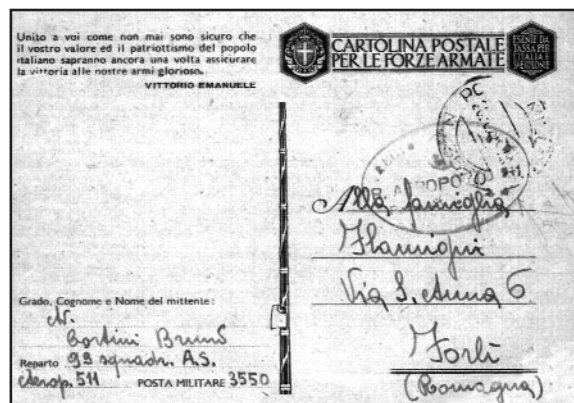 Unito a voi come non mai sono sicuro che
il vostro valore ed il patriottismo del popolo
italiano sapranno ancora una volta assicurare
la vittoria alle nostre armi gloriose.
VITTORIO EMANUELE
CARTOLINA POSTALE
PER LE FORZE ARMATE
ESENTE DA
TASSA PER
L'ITALIA E
Alla famiglia
Flamigni
Via S. Anna 6
Forlì
(Romagna)
Grado, Cognome e Nome del mittente:
Av.
Cortini Bruno
Reparto 93 squadr. A.S.
Aerop. 511 POSTA MILITARE 3550